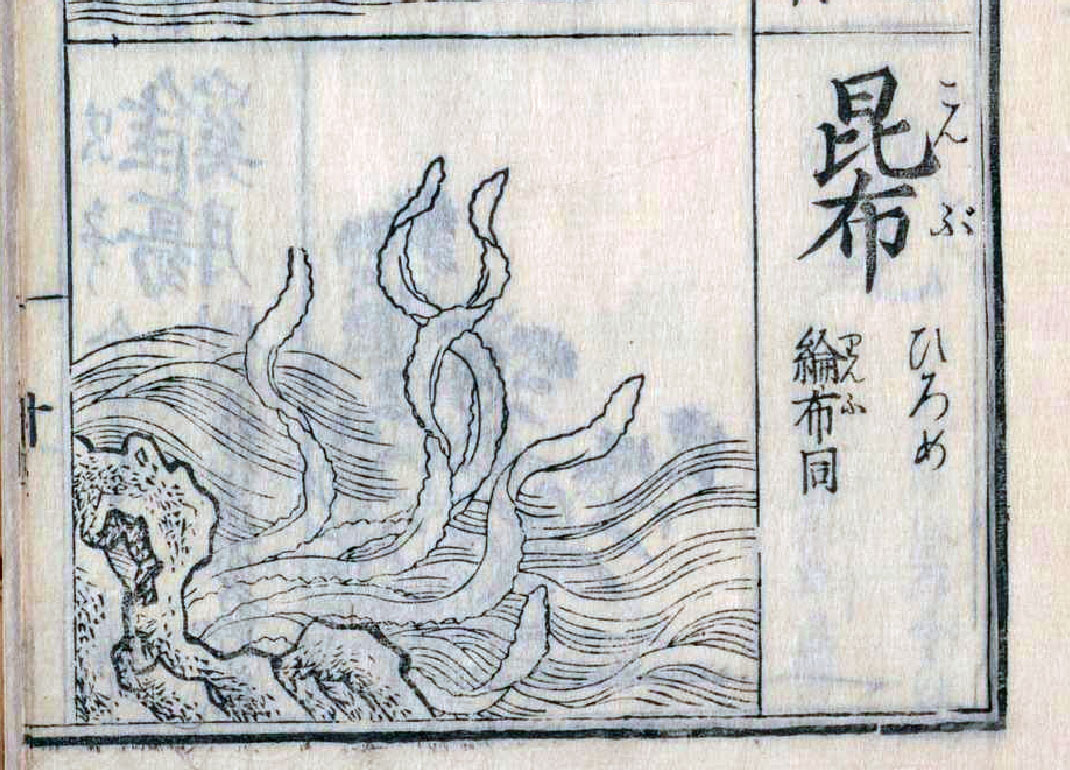 昆布
こんぶ
ひろめ
綸布同
りんふ